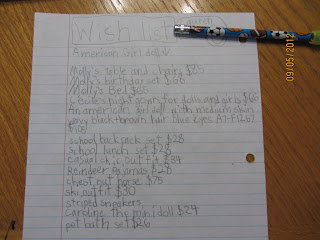 Wish list
American Girl doll
Molly's table and chairs $85
Molly's birthday set $68
Molly's Bed $65
Cecile's nightgowns for dolls and girls $66
An american girl doll with medium skin
wavy black-brown hair blue eyes
$105
school backpack set $28
school lunch set $28
casual chic outfit $34
Reindeer Pajamas $28
chestnut horse $75
ski outfit $30
striped sneakers
Caroline The mini doll $24
pet bath set $26
09/05/2012